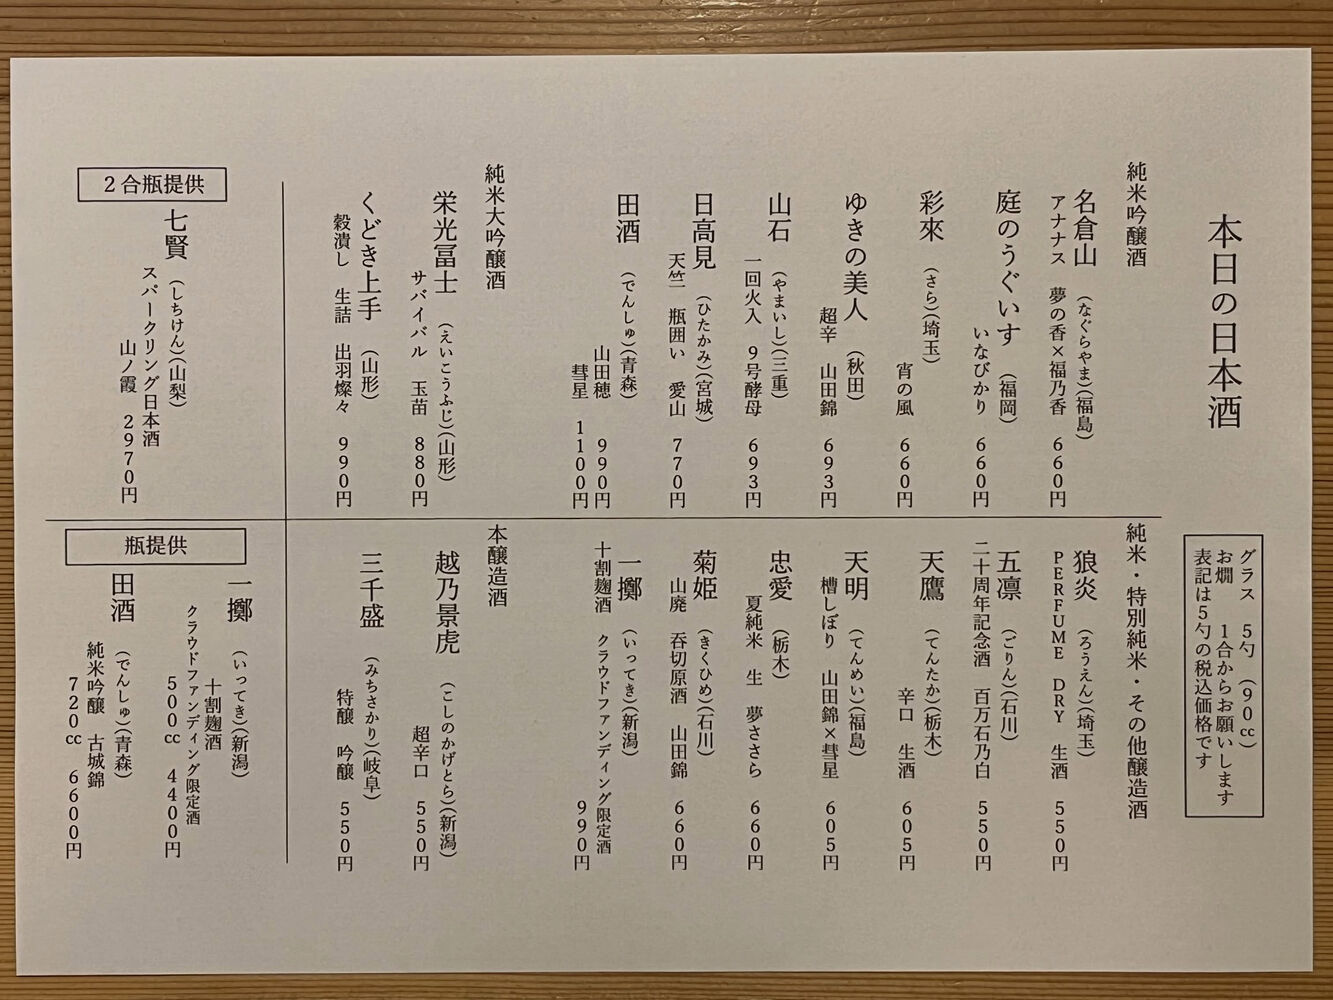 本日の日本酒
グラス　５勺　（９０㏄）
お燗　１合からお願いします
表記は５勺の税込価格です
純米吟醸酒
名倉山　（なぐらやま）（福島）
アナナス　夢の香×福乃香　６６０円
庭のうぐいす　（福岡）
いなびかり　６６０円
彩來　（さら）（埼玉）
宵の風　６６０円
ゆきの美人　（秋田）
超辛　山田錦　６９３円
山石　（やまいし）（三重）
一回火入　９号酵母　６９３円
日高見　（ひたかみ）（宮城）
天竺　瓶囲い　愛山　７７０円
田酒　（でんしゅ）（青森）
山田穂　９９０円
彗星　１１００円
純米大吟醸酒
栄光冨士　（えいこうふじ）（山形）
サバイバル　玉苗　８８０円
くどき上手　（山形）
穀潰し　生詰　出羽燦々　９９０円
純米・特別純米・その他醸造酒
狼炎　（ろうえん）（埼玉）
ＰＥＲＦＵＭＥ　ＤＲＹ　生酒　５５０円
五凛　（ごりん）（石川）
二十周年記念酒　百万石乃白　５５０円
天鷹　（てんたか）（栃木）
辛口　生酒　６０５円
天明　（てんめい）（福島）
槽しぼり　山田錦×彗星　６０５円
忠愛　（栃木）
夏純米　生　夢ささら　６６０円
菊姫　（きくひめ）（石川）
山廃　呑切原酒　山田錦　６６０円
一擲　（いってき）（新潟）
十割麹酒　クラウドファンディング限定酒
９９０円
本醸造酒
越乃景虎　（こしのかげとら）（新潟）
超辛口　５５０円
三千盛　（みちさかり）（岐阜）
特醸　吟醸　５５０円
２合瓶提供
七賢　（しちけん）（山梨）
スパークリング日本酒
山ノ霞　２９７０円
瓶提供
一擲　（いってき）（新潟）
十割麹酒
クラウドファンディング限定酒
５００㏄　４４００円
田酒　（でんしゅ）（青森）
純米吟醸　古城錦
７２０㏄　６６００円